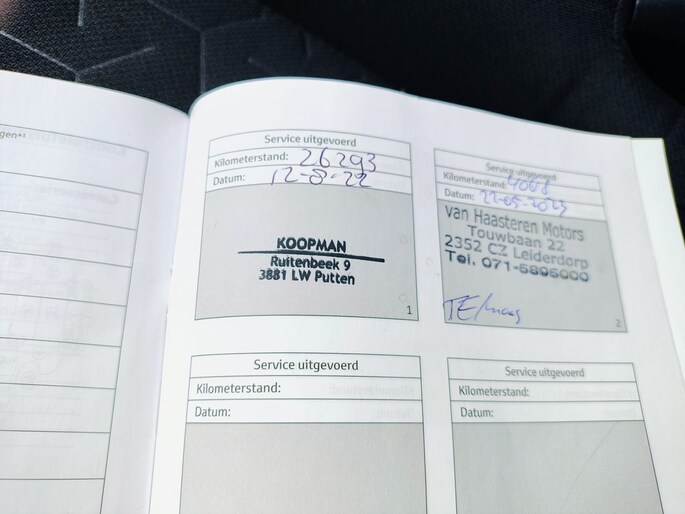 gen*³
Service uitgevoerd
Kilometerstand: 26293
Datum: 12-8-22
KOOPMAN
Ruitenbeek 9
3881 LW Putten
1
Service uitgevoerd
Kilometerstand:
Datum: 22-05-2023
van Haasteren Motors
Touwbaan 22
2352 CZ Leiderdorp
Tel. 071-5895000
2
Service uitgevoerd
Kilometerstand:
Datum:
Service uitgevoerd
Kilometerstand:
Datum: